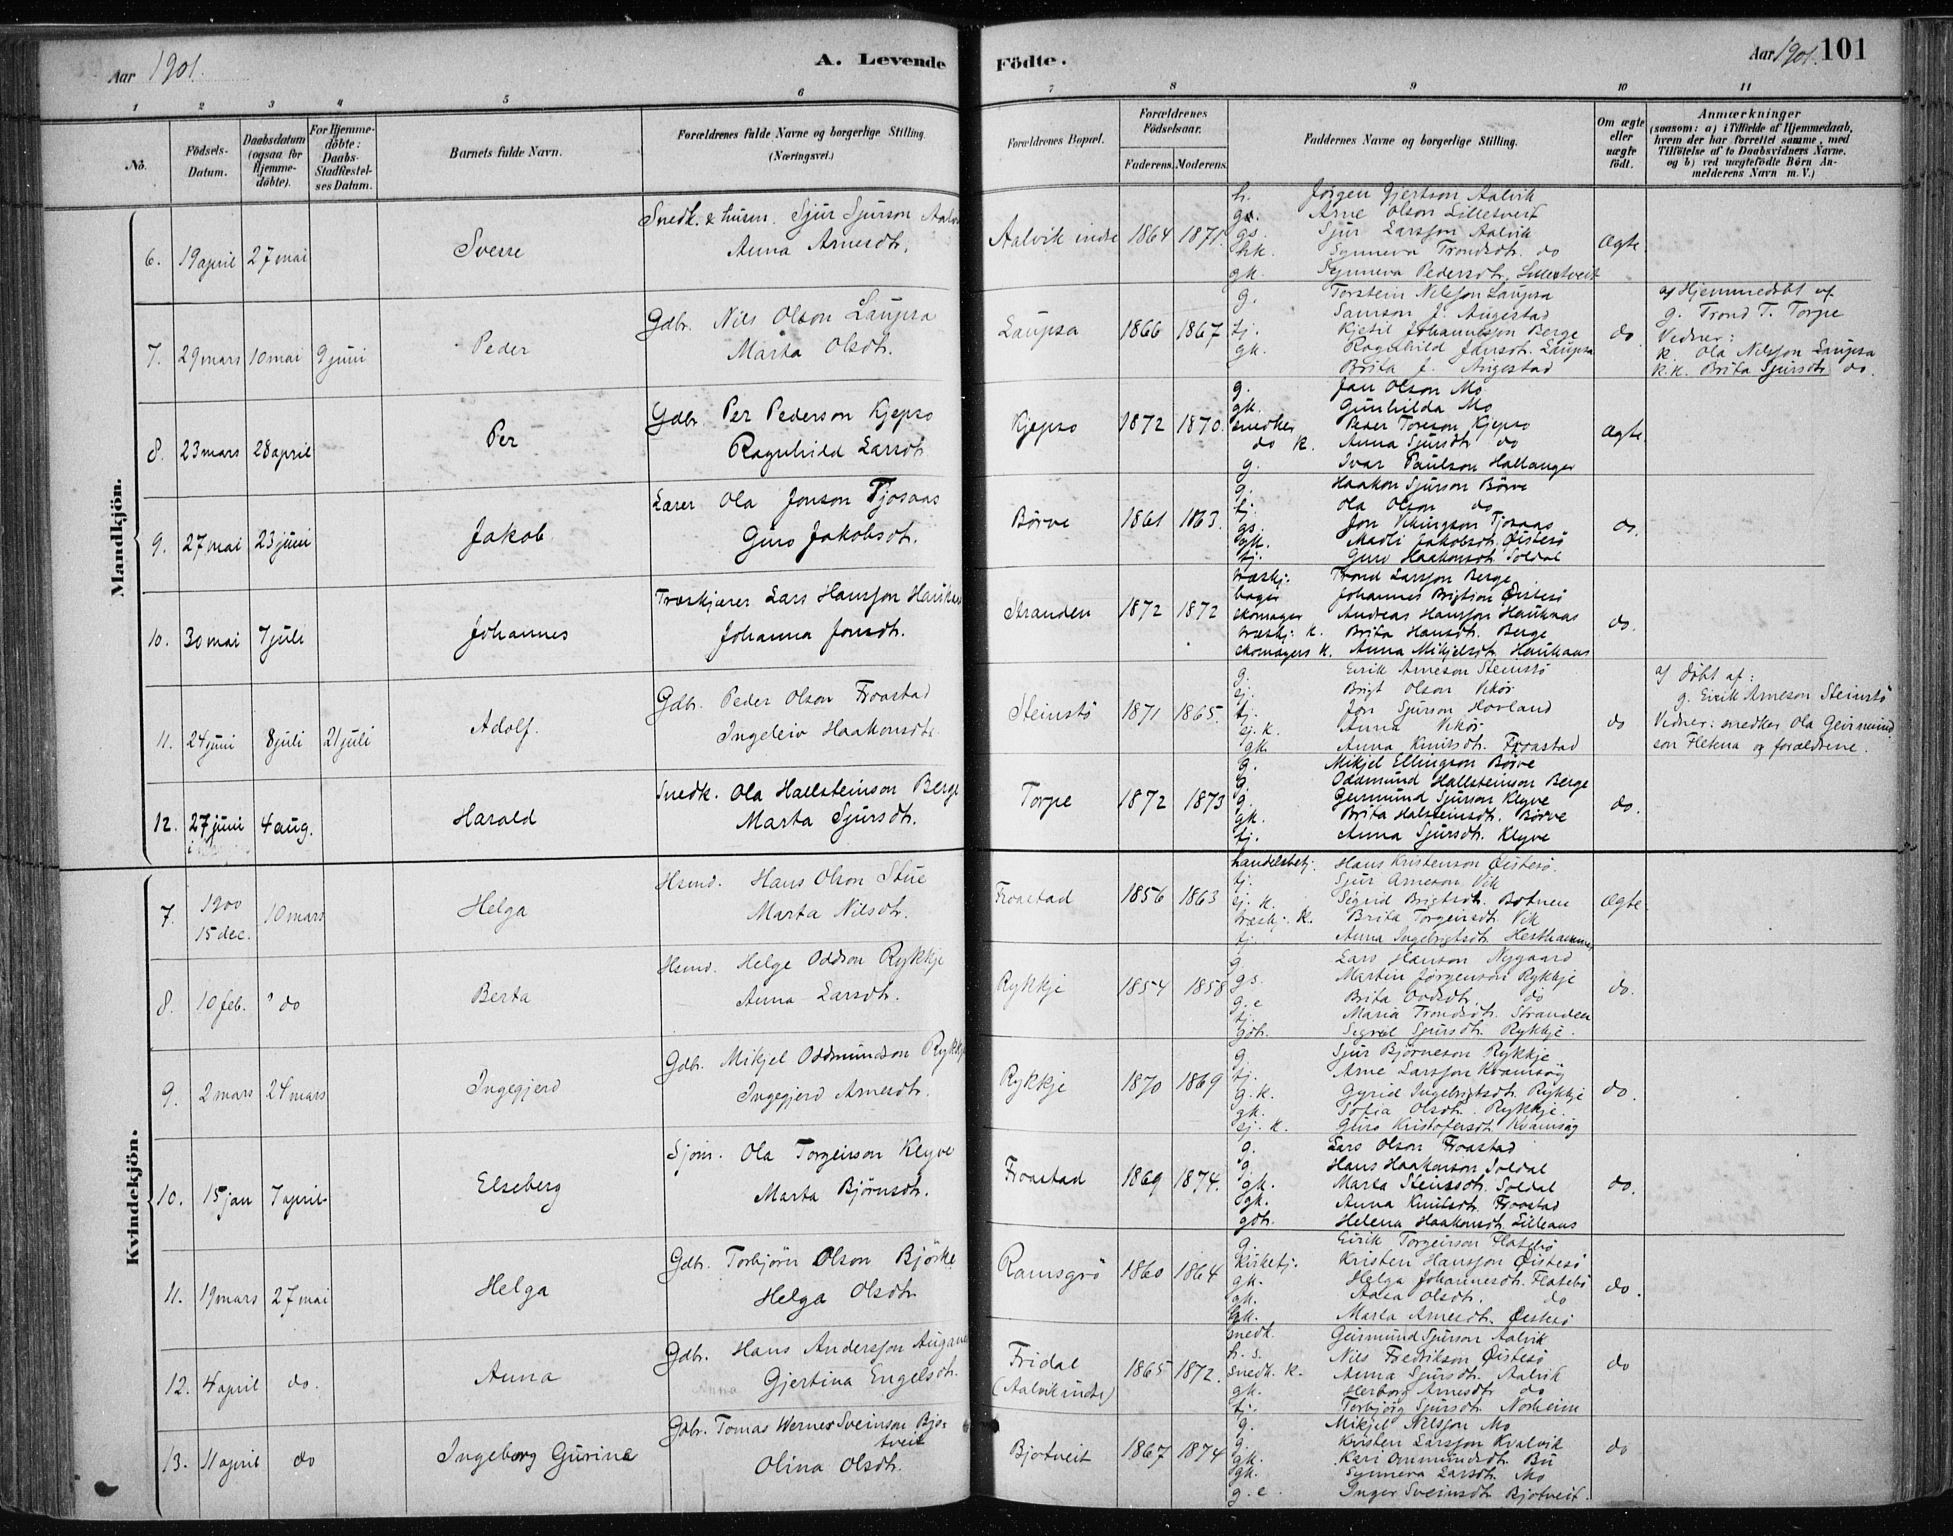 Aar 1901. A. Levende Födte. Aar 1901. 101
1 2 3 4 5 6 7 8 9 10 11
No. Födsels-Datum. Daabsdatum (ogsaa for Hjemmedöbte). For Hjemmedöbte: Daabs-Stadfæstelses Datum. Barnets fulde Navn. Forældrenes fulde Navne og borgerlige Stilling. (Næringsvei.) Forældrenes Bopæl. Forældrenes Födselsaar. Faderens. Moderens. Faddernes Navne og borgerlige Stilling. Om ægte eller uægte födt. Anmærkninger (saasom: a) i Tilfælde af Hjemmedaab, hvem der har forrettet samme, med Tilföielse af to Daabsvidners Navne, og b) ved uægtefödte Börn Anmelderens Navn m. V.)
Mandkjön.
6. 19 april 27 mai Sverre Snedk. & husm. Sjur Sjurson
Anna Arnesdtr. Aalvik indre 1864 1871. Ægte.
h. Jörgen Gjertson Aalvik
gs. Arne Olson Lilletveit
gs. Sjur Larsson Aalvik
hk. Synneva Trondsdtr. do
gk. Synneva Pedersdtr. Lilletveit
7. 29 mars 10 mai 9 juni Peder Gdbr. Nils Olson Laupsa
Marta Olsdtr. Laupsa 1866 1867 do.
g. Torstein Nilsson Laupsa
Samson J. Augestad
tj. Kjetil Johannesson Berge
gk. Ragnhild Jansdtr. Laupsa
Brita J. Augestad
a) Hjemmedöbt af
g. Trond T. Torpe
Vidner:
k. Ola Nilsson Laupsa
k.k. Brita Sjursdtr. do.
8. 23 mars 28 april Per Gdbr. Per Pederson Kjepso
Ragnhild Larsdtr. Kjepso 1872 1870. Ægte.
g. Jan Olson Mo
gk. Gunhilda Mo
snedker Peder Toreson Kjepso
do k. Anna Sjursdtr. do
g. Ivar Paulson Hallanger
9. 27 mai 23 juni Jakob Lærer Ola Jonson Tjosaas
Guro Jakobsdtr. Börve 1861 1863. do.
g. Haakon Sjurson Börve
tj. Ola Olson do
gs. Jon Vikingson Tjosaas
gk. Madli Jakobsdtr. Öistesö
tj. Guro Haakonsdtr. Soldal
10. 30 mai 7 juli Johannes Træskjærer Lars Hansson
Johanna Jonsdtr. Stranden 1872 1872 do.
træskj. Trond Larsson Berge
bager Johannes Brigtson Öistesö
skomager Andreas Hansson Haukaas
træskj. k. Brita Hansdtr. Berge
skomagers k. Anna Mikjelsdtr. Haukaas
11. 24 juni 8 juli 21 juli Adolf. Gdbr. Peder Olson Froastad
Ingeleiv Haakonsdtr. Steinstö 1871 1865. do
g. Eirik Arneson Steinstö
sj. Brigt Olson Vikör
tj. Jon Sjurson Hovland
sj. k. Anna Vikör
gk. Anna Knutsdtr. Froastad
a) döbt af:
g. Eirik Arneson Steinstö
Vidner: snedker Ola Geirmund-
son Fletena og forældrene.
12. 27 juni 4 aug. Harald Snedk. Ola Hallsteinson Berge
Marta Sjursdtr. Torpe 1872 1873 do.
g. Mikjel Ellingson Börve
g. Oddmund Hallsteinson Berge
g. Geirmund Sjurson Klyve
gk. Brita Halsteinsdtr. Börve
tj. Anna Sjursdtr. Klyve
Kvindekjön.
7. 1900 15 dec. 10 mars Helga Hsmd. Hans Olson Stue
Marta Nilsdtr. Froastad 1856 1863 Ægte.
handelsbetj. Hans Kristenson Öistesö.
tj. Sjur Arneson Vik
sj. k. Sigrid Brigtsdtr. Botnen
træskj. k. Brita Torgeirsdtr. Vik
tj. Anna Ingebrigtsdtr. Hesthamner
8. 10 feb. do Berta Hsmd. Helge Oddson Rykkje
Anna Larsdtr. Rykkje 1854 1858 do.
g Lars Hanson Nygaard
gs. Martin Jörgenson Rykkje
g.e Brita Oddsdtr. do
tj. Maria Trondsdtr. Stranden
gdtr. Sigrid Sjursdtr. Rykkje.
9. 2 mars 24 mars Ingegjerd Gdbr. Mikjel Oddmundson Rykkje
Ingegjerd Arnesdtr. Rykkje 1870 1869 do.
g. Sjur Björneson Rykkje
tj. Arne Larsson Kvamsög
g.k. Gyrid Ingebrigtsdtr. Rykkje
gk. Sofia Olsdtr. Rykkje.
sj. k. Guro Kristofersdtr. Kvamsög
10. 15 jan 7 april Elseberg Sjöm. Ola Torgeirson Klyve
Marta Björnsdtr. Froastad 1869 1874. do.
g. Lars Olson Froastad
g. Hans Haakonson Soldal
gk. Marta Steinsdtr. Soldal
gk. Anna Knutsdtr. Froastad
gdtr. Helena Haakonsdtr. Lilleaas
11. 19 mars 27 mai Helga Gdbr. Torbjörn Olson Björke
Helga Olsdtr. Ramsgrö 1860 1864 do.
g. Eirik Torgeirson Flatebö
kirketj. Kristen Hansson Öistesö
gk. Helga Johannesdtr. Flatebö
gk. Olsdtr. do
gk. Marta Arnesdtr. Öistesö
12. 4 april do. Anna Gdbr. Hans Andersson
Gjertina Engelsdtr. Fridal (Aalvik indre) 1865 1872. do
snedk. Geirmund Sjurson Aalvik
h. s. Nils Fredrikson Öistesö
snedk. k. Anna Sjursdtr. Aalvik
gk. Herborg Arnesdtr. do
tj. Torbjörg Sjursdtr. Norheim
13. 11 april do Ingeborg Gurine Gdbr. Tomas Werner Sveinson Bjotveit
Olina Olsdtr. Bjotveit 1867 1874 do
g. Mikjel Nilsson Mo
g. Kristen Larsson Kvalvik
gk. Kari Ommundsdtr. Bu
gk. Synneva Larsdtr. Mo
g.e. Inger Sveinsdtr. Bjotveit.